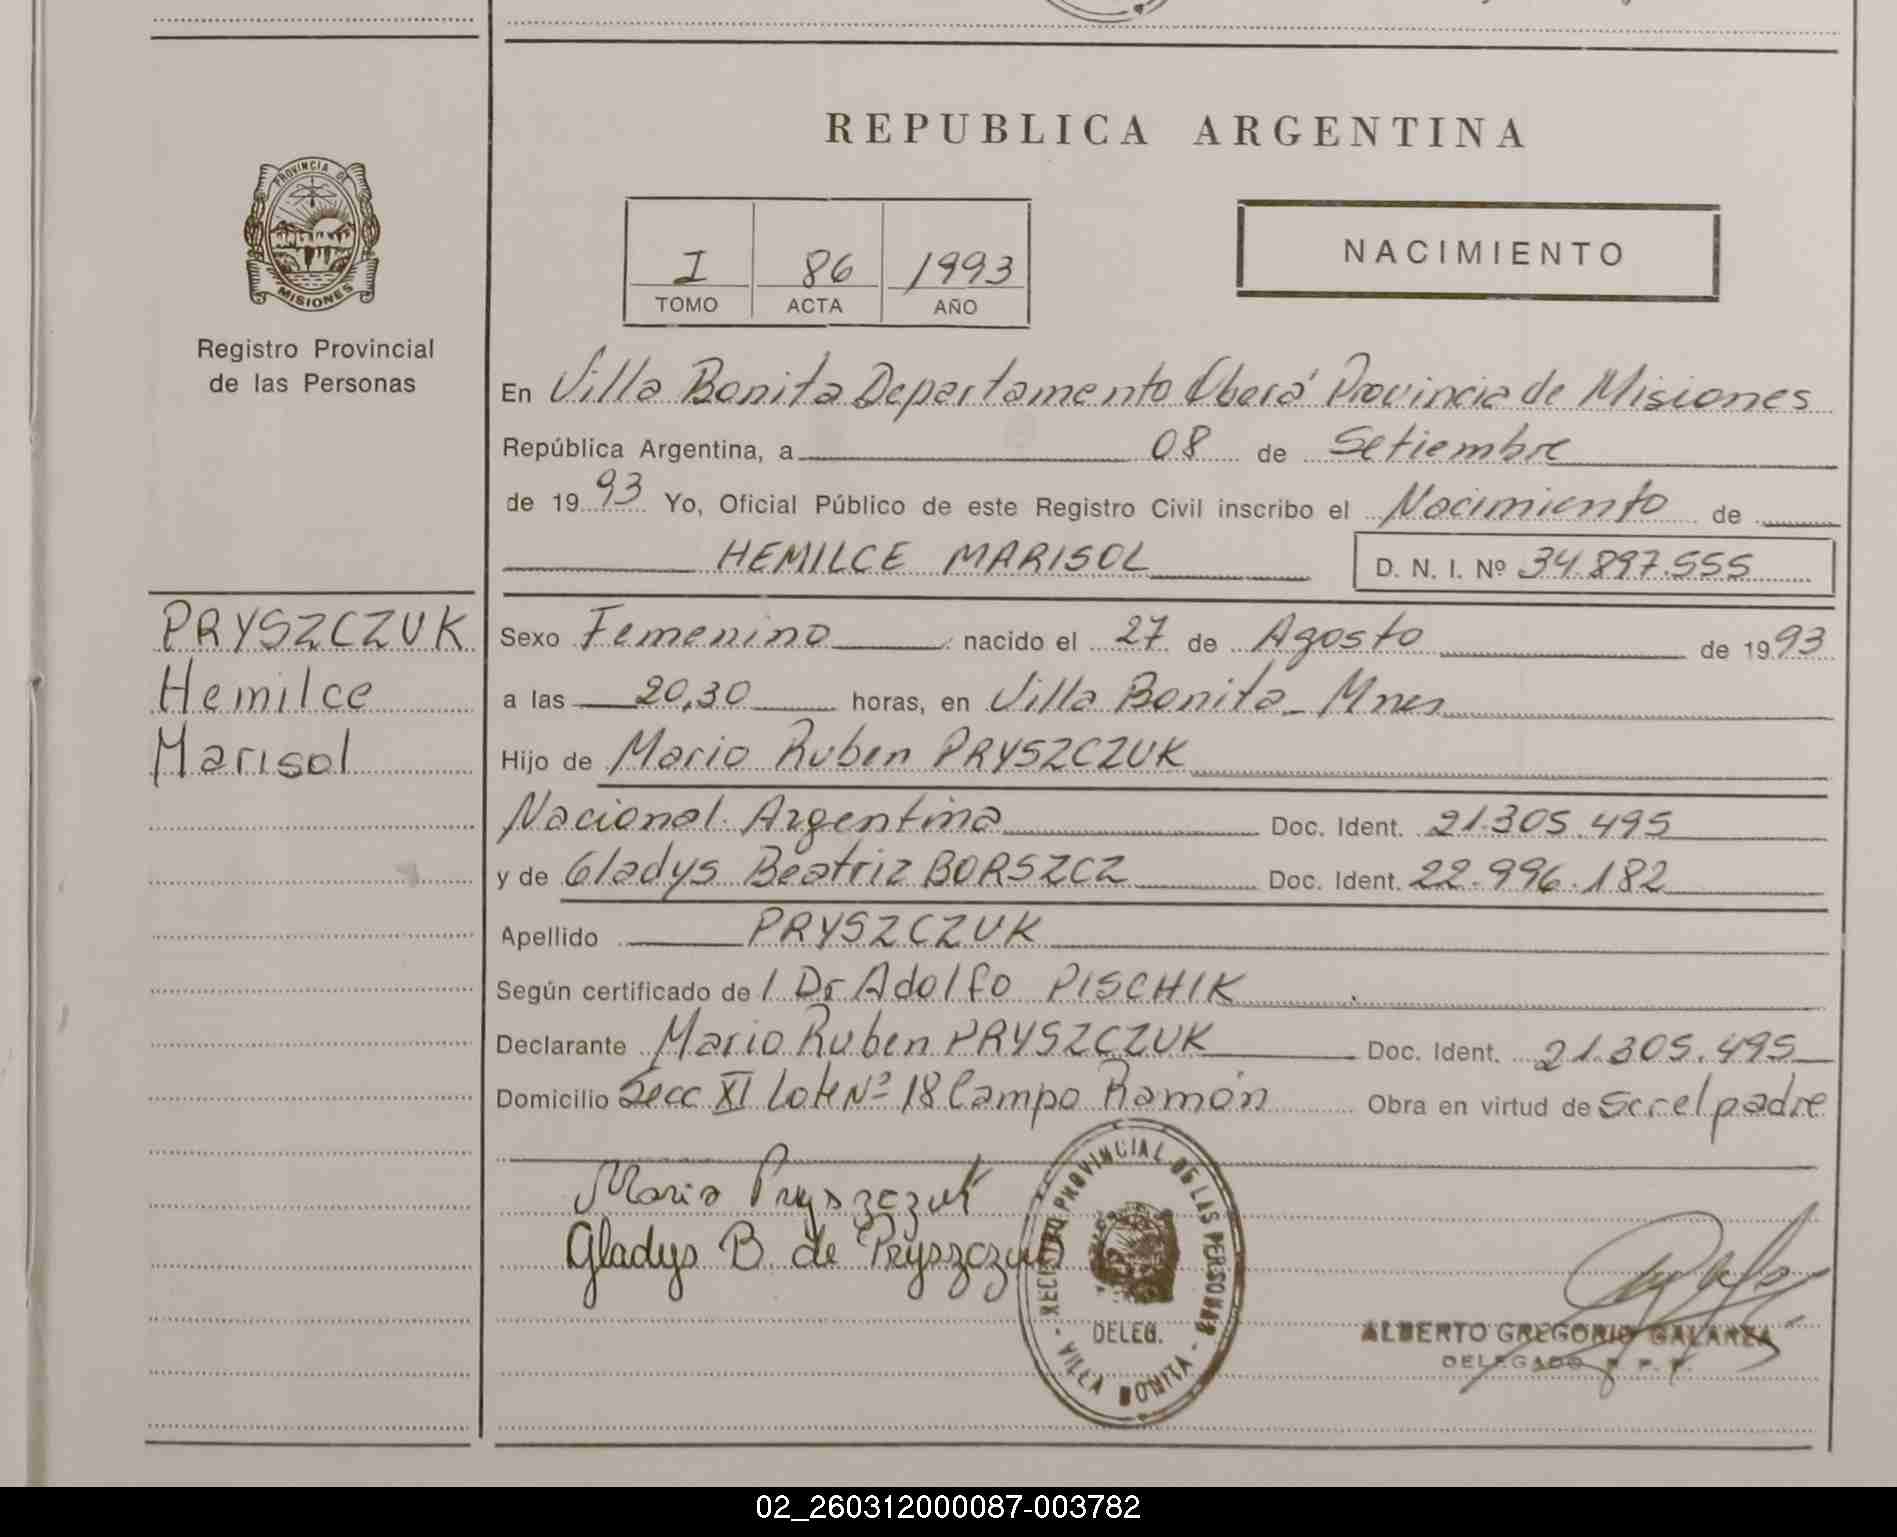 PROVINCIA DE
MISIONES
Registro Provincial
de las Personas
PRYSZCZUK
Hemilce
Marisol
REPUBLICA ARGENTINA
I 86 1993
TOMO ACTA AÑO
NACIMIENTO
En Villa Bonita Departamento Oberá Provincia de Misiones
República Argentina, a 08 de Setiembre
de 1993 Yo, Oficial Público de este Registro Civil inscribo el Nacimiento de
HEMILCE MARISOL D. N. I. Nº 34.897.555
Sexo Femenino nacido el 27 de Agosto de 1993
a las 20,30 horas, en Villa Bonita - Mnes
Hijo de Mario Ruben PRYSZCZUK
Nacional. Argentina Doc. Ident. 21.305.495
y de Gladys Beatriz BORSZCZ Doc. Ident. 22.996.182
Apellido PRYSZCZUK
Según certificado de l Dr Adolfo PISCHIK
Declarante Mario Ruben PRYSZCZUK Doc. Ident. 21.305.495
Domicilio Secc XI Lote Nº 18 Campo Ramón Obra en virtud de ser el padre
Mario Pryszczuk
Gladys B. de Pryszczuk
REGISTRO PROVINCIAL DE LAS PERSONAS
DELEG.
- VILLA BONITA -
ALBERTO GREGORIO GALARZA
DELEGADO R. P. P.
02_260312000087-003782